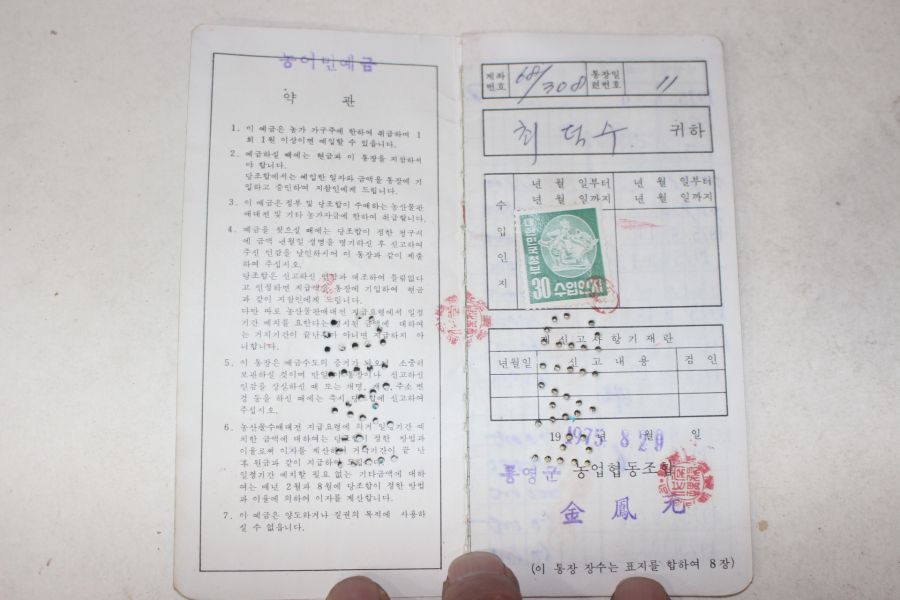 농어민예금
약 관
1. 이 예금은 농가 가구주에 한하여 취급하며 1
회 1원 이상이면 예입할 수 있읍니다.
2. 예금하실 때에는 현금과 이 통장을 지참하셔
야 합니다.
당조합에서는 예입한 일자와 금액을 통장에 기
입하고 증인하여 지참인에게 드립니다.
3. 이 예금은 정부 및 당조합이 수매하는 농산물판
매대전 및 기타 농가자금에 한하여 취급합니다.
4. 예금을 찾으실 때에는 당조합이 정한 청구서
에 금액 년월일 성명을 명기하신 후 신고하여
주신 인감을 날인하시어 이 통장과 같이 제출
하여 주십시오.
당조합은 신고하신 인감과 대조하여 틀림없다
고 인정하면 지급액을 통장에 기입하여 현금
과 같이 지참인에게 드립니다.
다만 따로 농산물판매대전 지급요령에서 일정
기간 예치를 요한다는 명시된 금액에 대하여
는 거치기간이 끝난 후가 아니면 지급하지 아
니합니다.
5. 이 통장은 예금수도의 증거가 되오니 소중히
보관하실 것이며 만일 이 통장이나 신고하신
인감을 상실하신 때 또는 개명, 개인, 주소 변
경 등을 하신 때에는 즉시 당조합에 신고하여
주십시오.
6. 농산물수매대전 지급요령에 의거 일정기간 예
치한 금액에 대하여는 당조합이 정한 방법과
이율로써 이자를 계산하여 거치기간이 끝난
후 원금과 같이 지급하여 드립니다.
일정기간 예치할 필요 없는 기타금액에 대하
여는 매년 2월과 8월에 당조합이 정한 방법
과 이율에 의하여 이자를 계산합니다.
7. 이 예금은 양도하거나 질권의 목적에 사용하
실 수 없읍니다.
계좌번호 68/308 통장일련번호 11
최덕수 귀하
수입인지
년 월 일부터 년 월 일부터
년 월 일까지 년 월 일까지
대한민국정부
30 수입인지
제신고사항기재란
년월일 신고내용 검인
19 1975년 8월 29일
통영군 농업협동조합
金鳳元
(이 통장 장수는 표지를 합하여 8장)